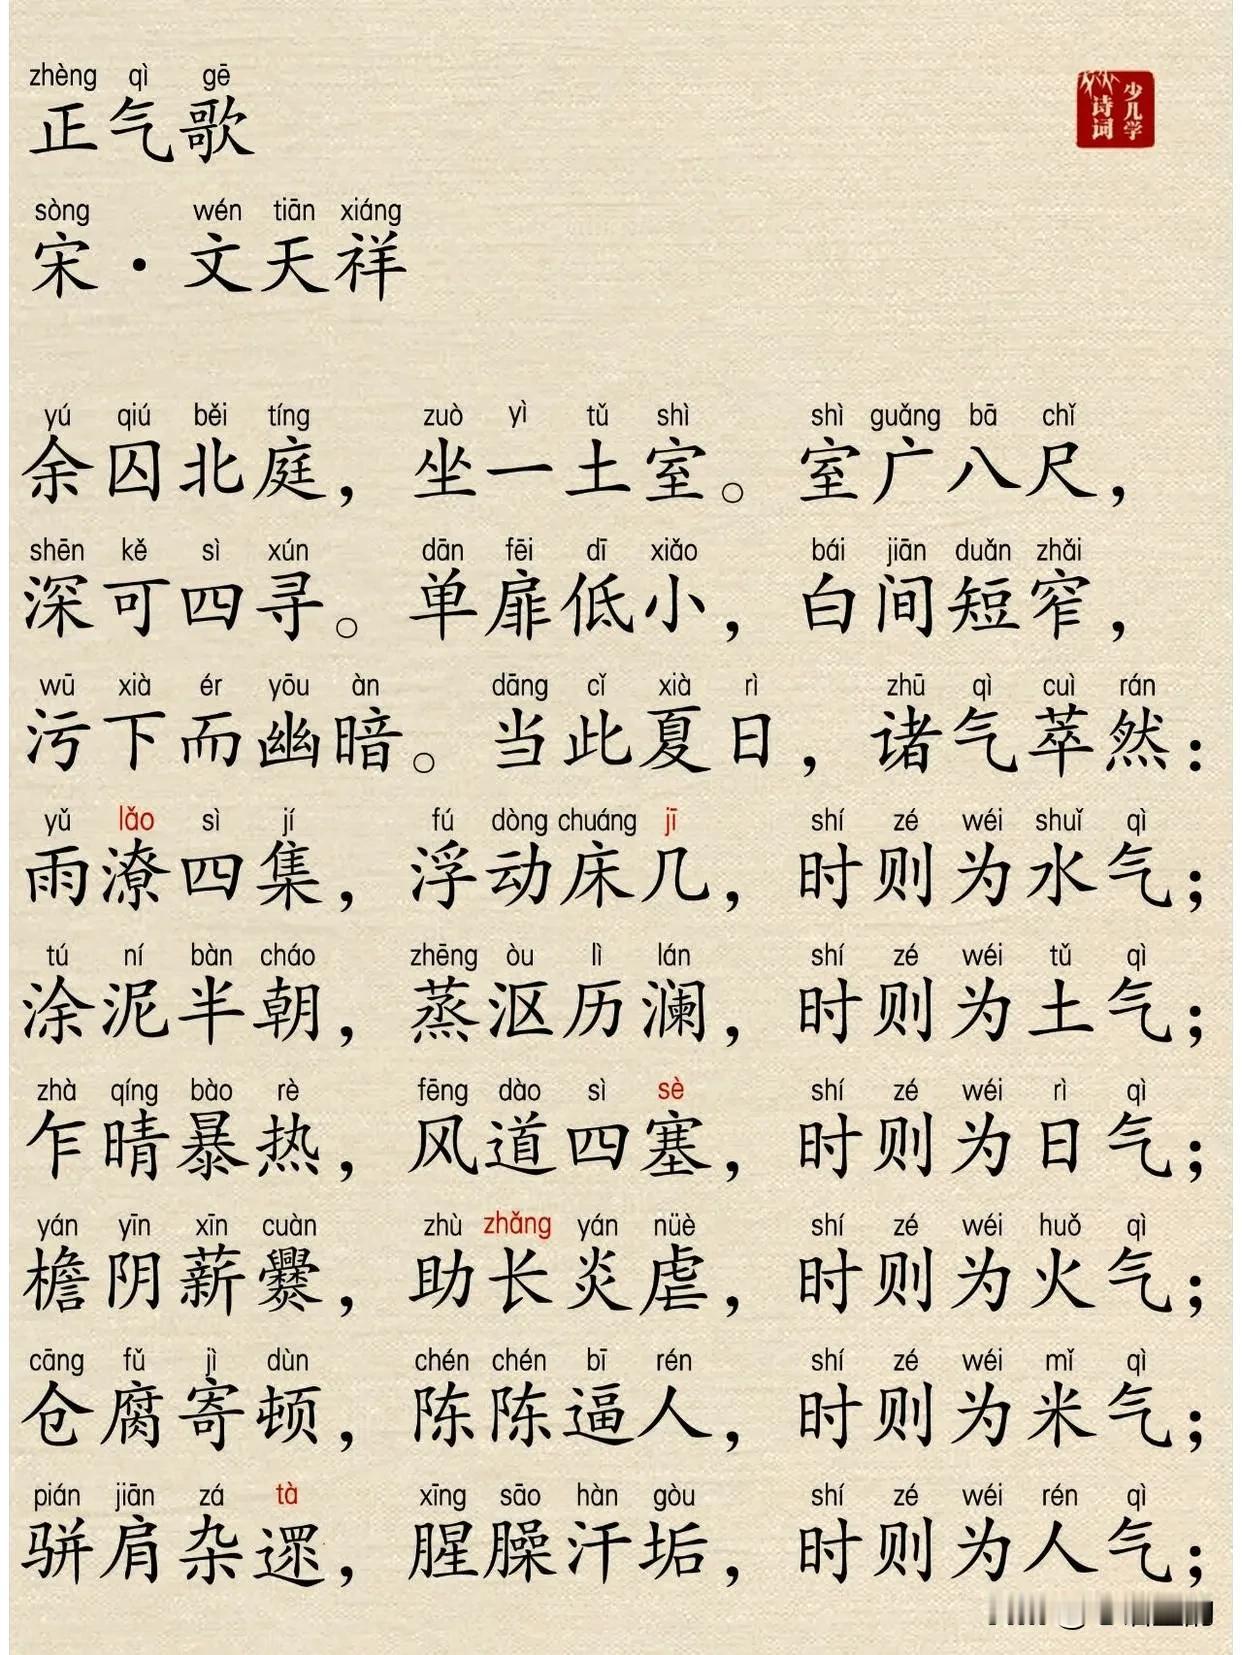 zhèng qì gē
正气歌
少儿学
诗词
sòng wén tiān xiáng
宋·文天祥
yú qiú běi tíng zuò yì tǔ shì shì guǎng bā chǐ
余囚北庭，坐一土室。室广八尺，
shēn kě sì xún dān fēi dī xiǎo bái jiān duǎn zhǎi
深可四寻。单扉低小，白间短窄，
wū xià ér yōu àn dāng cǐ xià rì zhū qì cuì rán
污下而幽暗。当此夏日，诸气萃然：
yǔ lǎo sì jí fú dòng chuáng jī shí zé wéi shuǐ qì
雨潦四集，浮动床几，时则为水气；
tú ní bàn cháo zhēng òu lì lán shí zé wéi tǔ qì
涂泥半朝，蒸沤历澜，时则为土气；
zhà qíng bào rè fēng dào sì sè shí zé wéi rì qì
乍晴暴热，风道四塞，时则为日气；
yán yīn xīn cuàn zhù zhǎng yán nüè shí zé wéi huǒ qì
檐阴薪爨，助长炎虐，时则为火气；
cāng fǔ jì dùn chén chén bī rén shí zé wéi mǐ qì
仓腐寄顿，陈陈逼人，时则为米气；
pián jiān zá tà xīng sāo hàn gòu shí zé wéi rén qì
骈肩杂遝，腥臊汗垢，时则为人气；